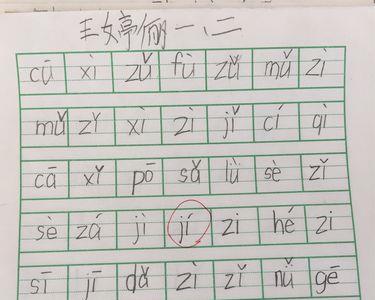 王女婷俪一、二
cū xì zǔ fù zǔ mǔ zǐ
mǔ zǐ xì zì jǐ cí qì
cā xǐ pō sǎ lǜ sè zǐ
sè zá jì jí zi hé zi
sī jī dǎ zì zǐ nǚ gē